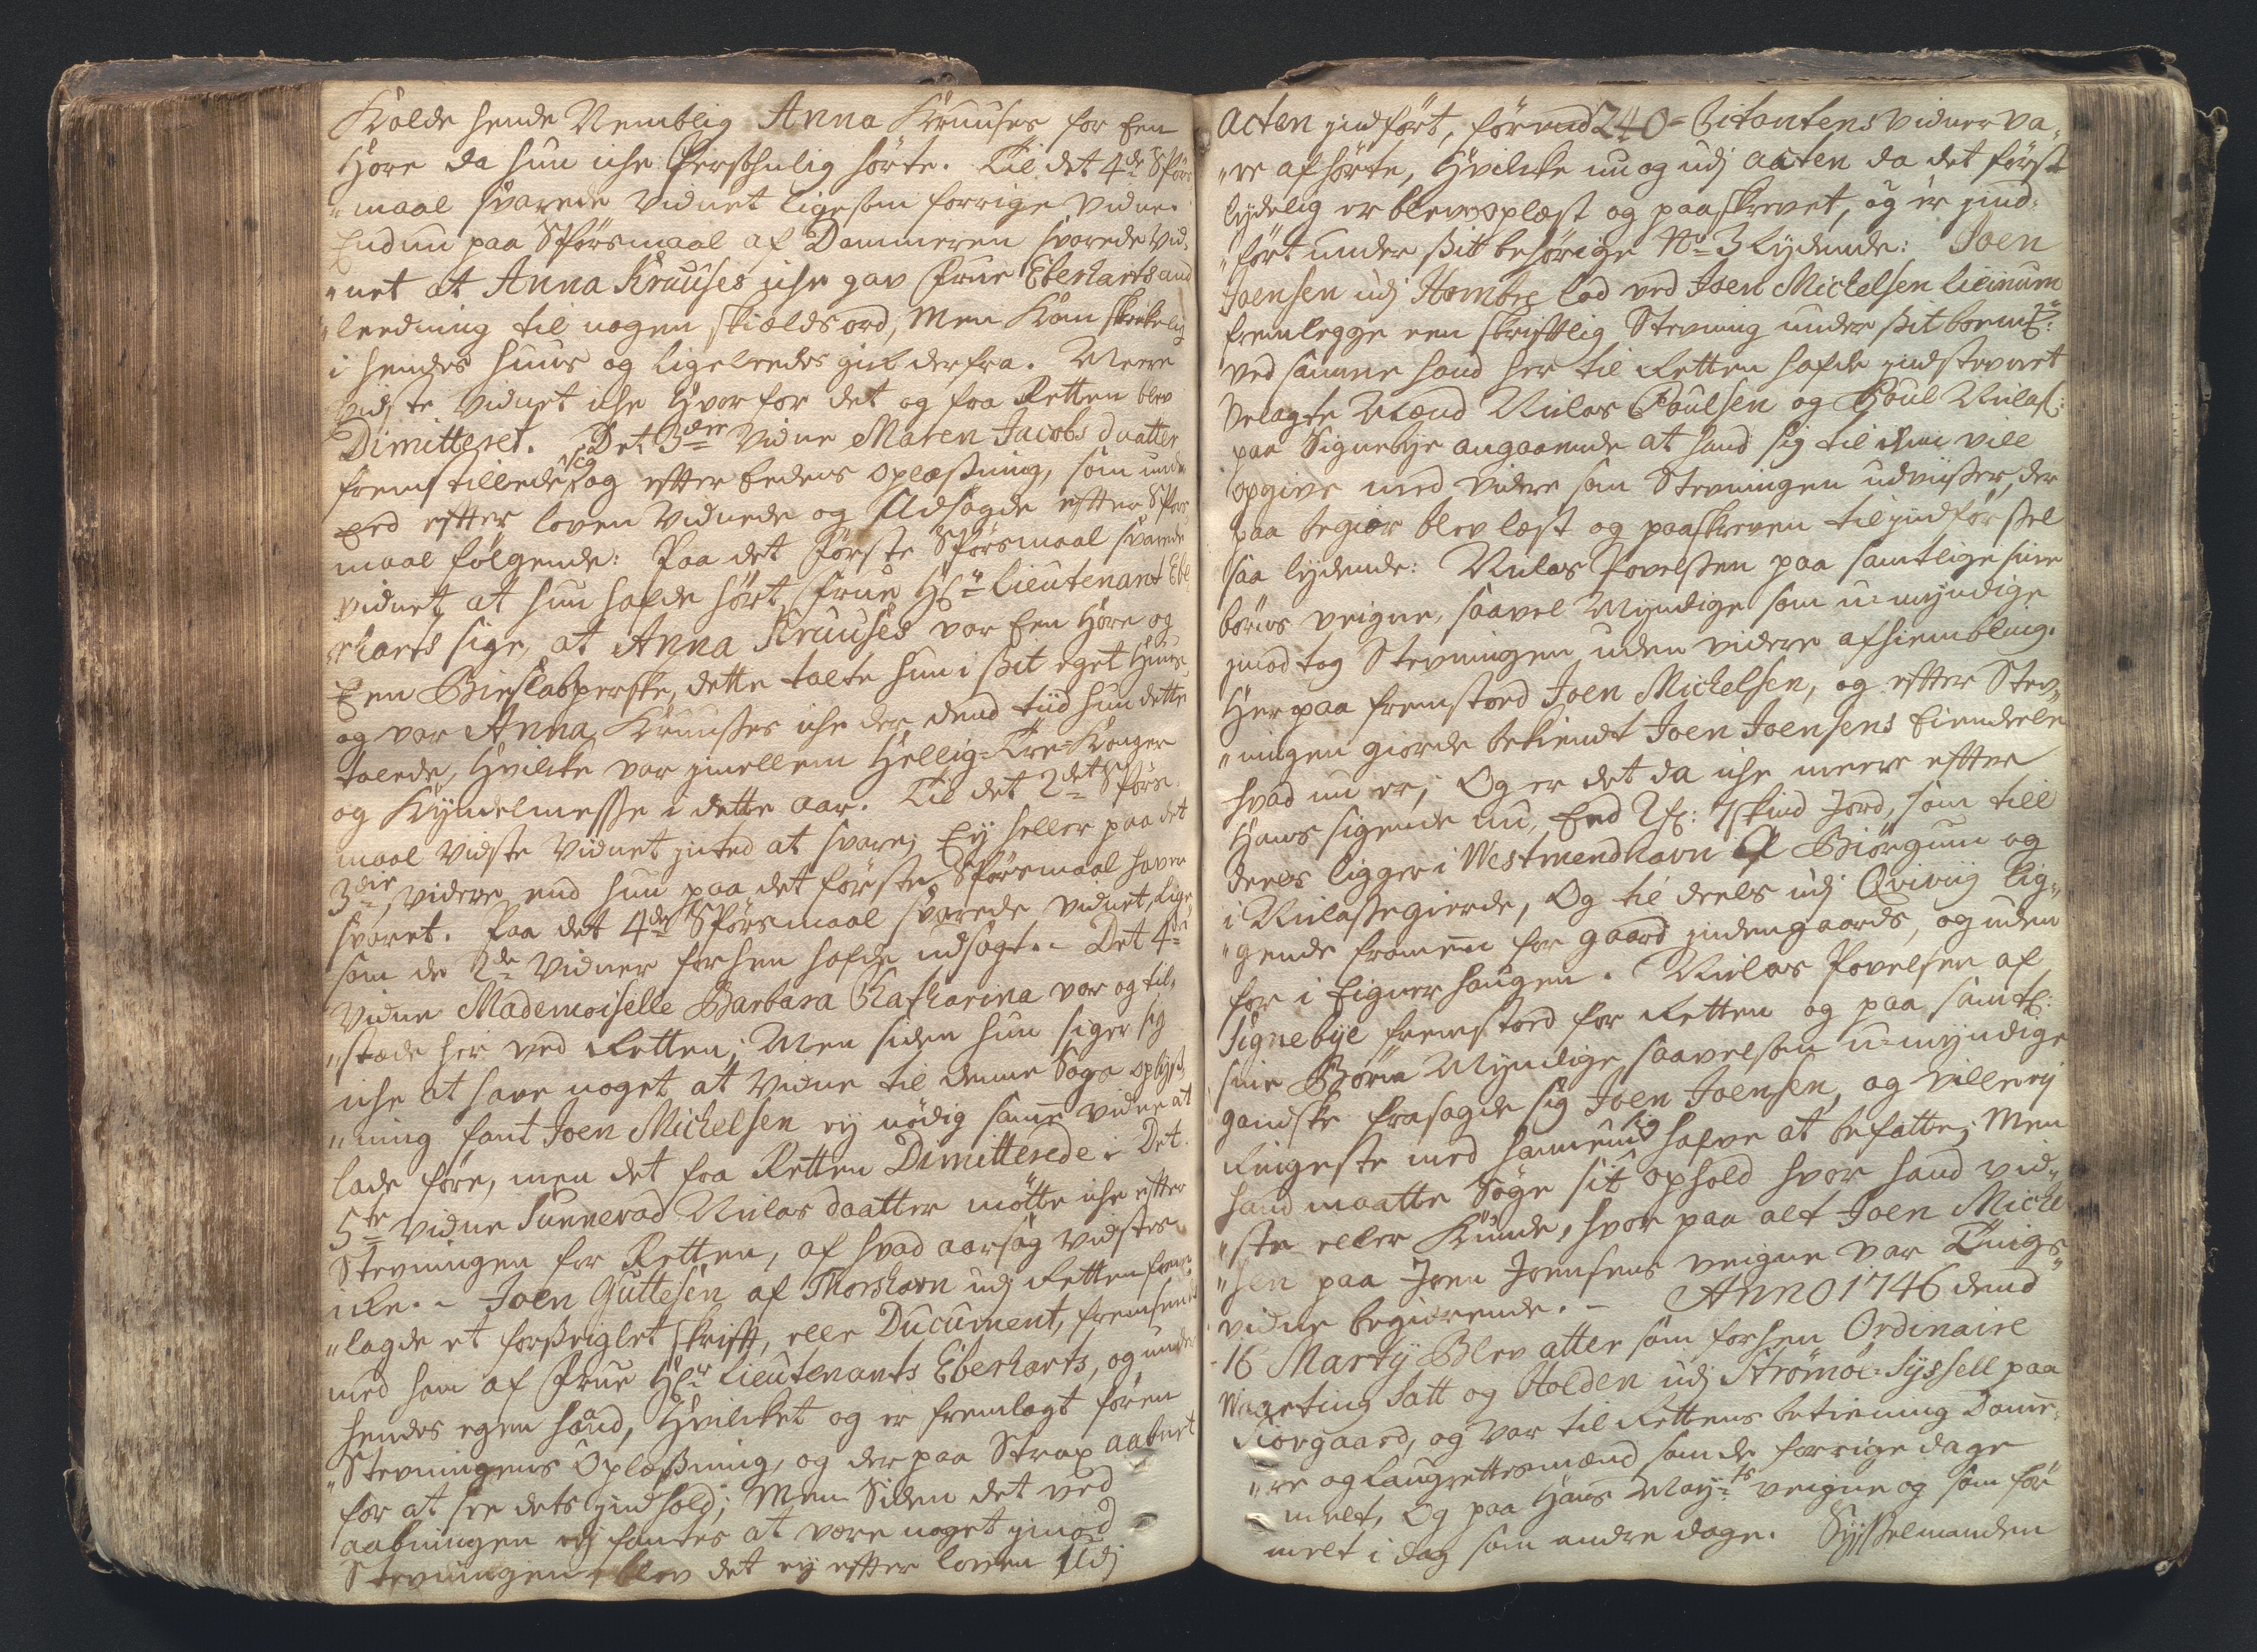 Kalde hende Nemblig Anna Kruuses for Een
Hore da hun iche Persohnlig hørte. Til det 4de Spørs
„maal svarede Vidnet ligesom forrige Vidne.
Endnu paa Spørsmaal af Dommeren svarede Vid„
„net at Anna Kruuses iche gav Frue Eberharts and
„leedning til nogen skieldsord, Men Kom skikkelig
i hendes Huus og ligeleedes gik derfra. Meere
vidste Vidnet iche Hvorfor det og fra Retten blev
Dimitteret. Det 3die Vidne Maren Jacobs daatter
fremstillede sig og efter Eedens oplæsning, som under
Eed efter loven Vidnede og Udsagde efter Spørs
maal følgende: Paa det første Spørsmaal svarede
vidnet at hun hafde hørt Frue Hr. Lieutenant Ebe
rharts sige, at Anna Kruuses var Een Hore og
Een Biesladperske, dette talte hun i sit eget Huus
og var Anna Kruuses iche der dend tiid hun dette
talede, Hvilket var jmellem Hellig-Tre-Konger
og Kyndelmesse i dette aar. Til det 2det Spørs
maal vidste Vidnet inted at svare, Ey heller paa det
3die, videre end hun paa det første Spørsmaal haver
svaret. Paa det 4de Spørsmaal svarede vidnet, lige
som de 2de Vidner forhen hafde udsagt. - Det 4de
Vidne Mademoiselle Barbara Catharina var og til„
„stæde her ved Retten; Men siden hun siger sig
iche at have noget at vidne til denne Sags oplys„
„ning fant Joen Michelsen ey nødig samme vidne at
lade føre, men det fra Retten Dimitterede. Det
5te Vidne Sunnevad Nielsdaatter møtte iche efter
Stevningen for Retten, af hvad aarsag vidstes
iche. - Joen Guttesen af Thorshavn udj Retten frem„
„lagde et forseiglet skrift, eller Ducument, fremsendt
med ham af Frue Hr. Lieutenants Eberharts, og under
hendes egen haand, Hvilcket og er fremlagt føren
Stevningens Oplæsning, og derpaa Strax aabnet
for at see dets indhold; Men Siden det ved
aabningen ey fantes at være noget imod
Stevningen, blev det ey efter loven Udj
240
acten indført, førend Citantens vidner va„
„re afhørte, Hvilcke nu og udj acten da det først
lydelig er blevet oplæst og paaskrevet, og er ind„
„ført under sit behørige No 3 lydende: Joen
Joensen udj Hombre lod ved Joen Michelsen
fremlegge een skriftlig Stevning under sit
ved samme haand her til Retten hafde indstevnet
Velagte Mænd Nielas Poulsen og Poul Nielas:
paa Signebye angaaende at hand sig til dem vill
opgive med videre som Stevningen udviiser, der
paa begiær blev læst og paaskreven til indførsel
saa lydende: Nielas Povelsen paa samtlige sine
børns veigne, saavel Myndige som u-myndige
imodtog Stevningen uden videre afhiembling.
Herpaa fremstoed Joen Michelsen, og efter Stev„
„ningen giorde bekiendt Joen Joensens Eiendeele
hvad nu er; Og er det da iche meere efter
Hans sigende nu, End 2 G: 7 skind Jord, som till
deels ligger i Westmendhavn a Biørgum og
i Nielassegierde, Og til deels udj Qviviig lig„
„gende framen for gaard indengaards, og uden
for i Eigner haugen. Nielas Povelsen af
Signebye fremstoed for Retten og paa samtl:
sine Børn Myndige saavelsom u-myndige
gandske frasagde sig Joen Joensen, og ville ey
ringeste med hannem sig hafve at befatte; Men
hand maatte Søge sit ophold hvor hand vid„
„ste eller Kunde, hvor paa alt Joen Michel
„sen paa Joen Joensens veigne var Tings
vidne begiærende. - Anno 1746 dend
16 Marty Blev atter som forhen Ordinaire
Waarting Satt og Holden udj Strømøe-Syssell paa
Siovgaard, og var til Rettens betiening Domme„
„re og Laugrettesmænd som de forrige dage
melt, Og paa Hans Mayts veigne og som før
melt i dag som andre dage. Sysselmanden